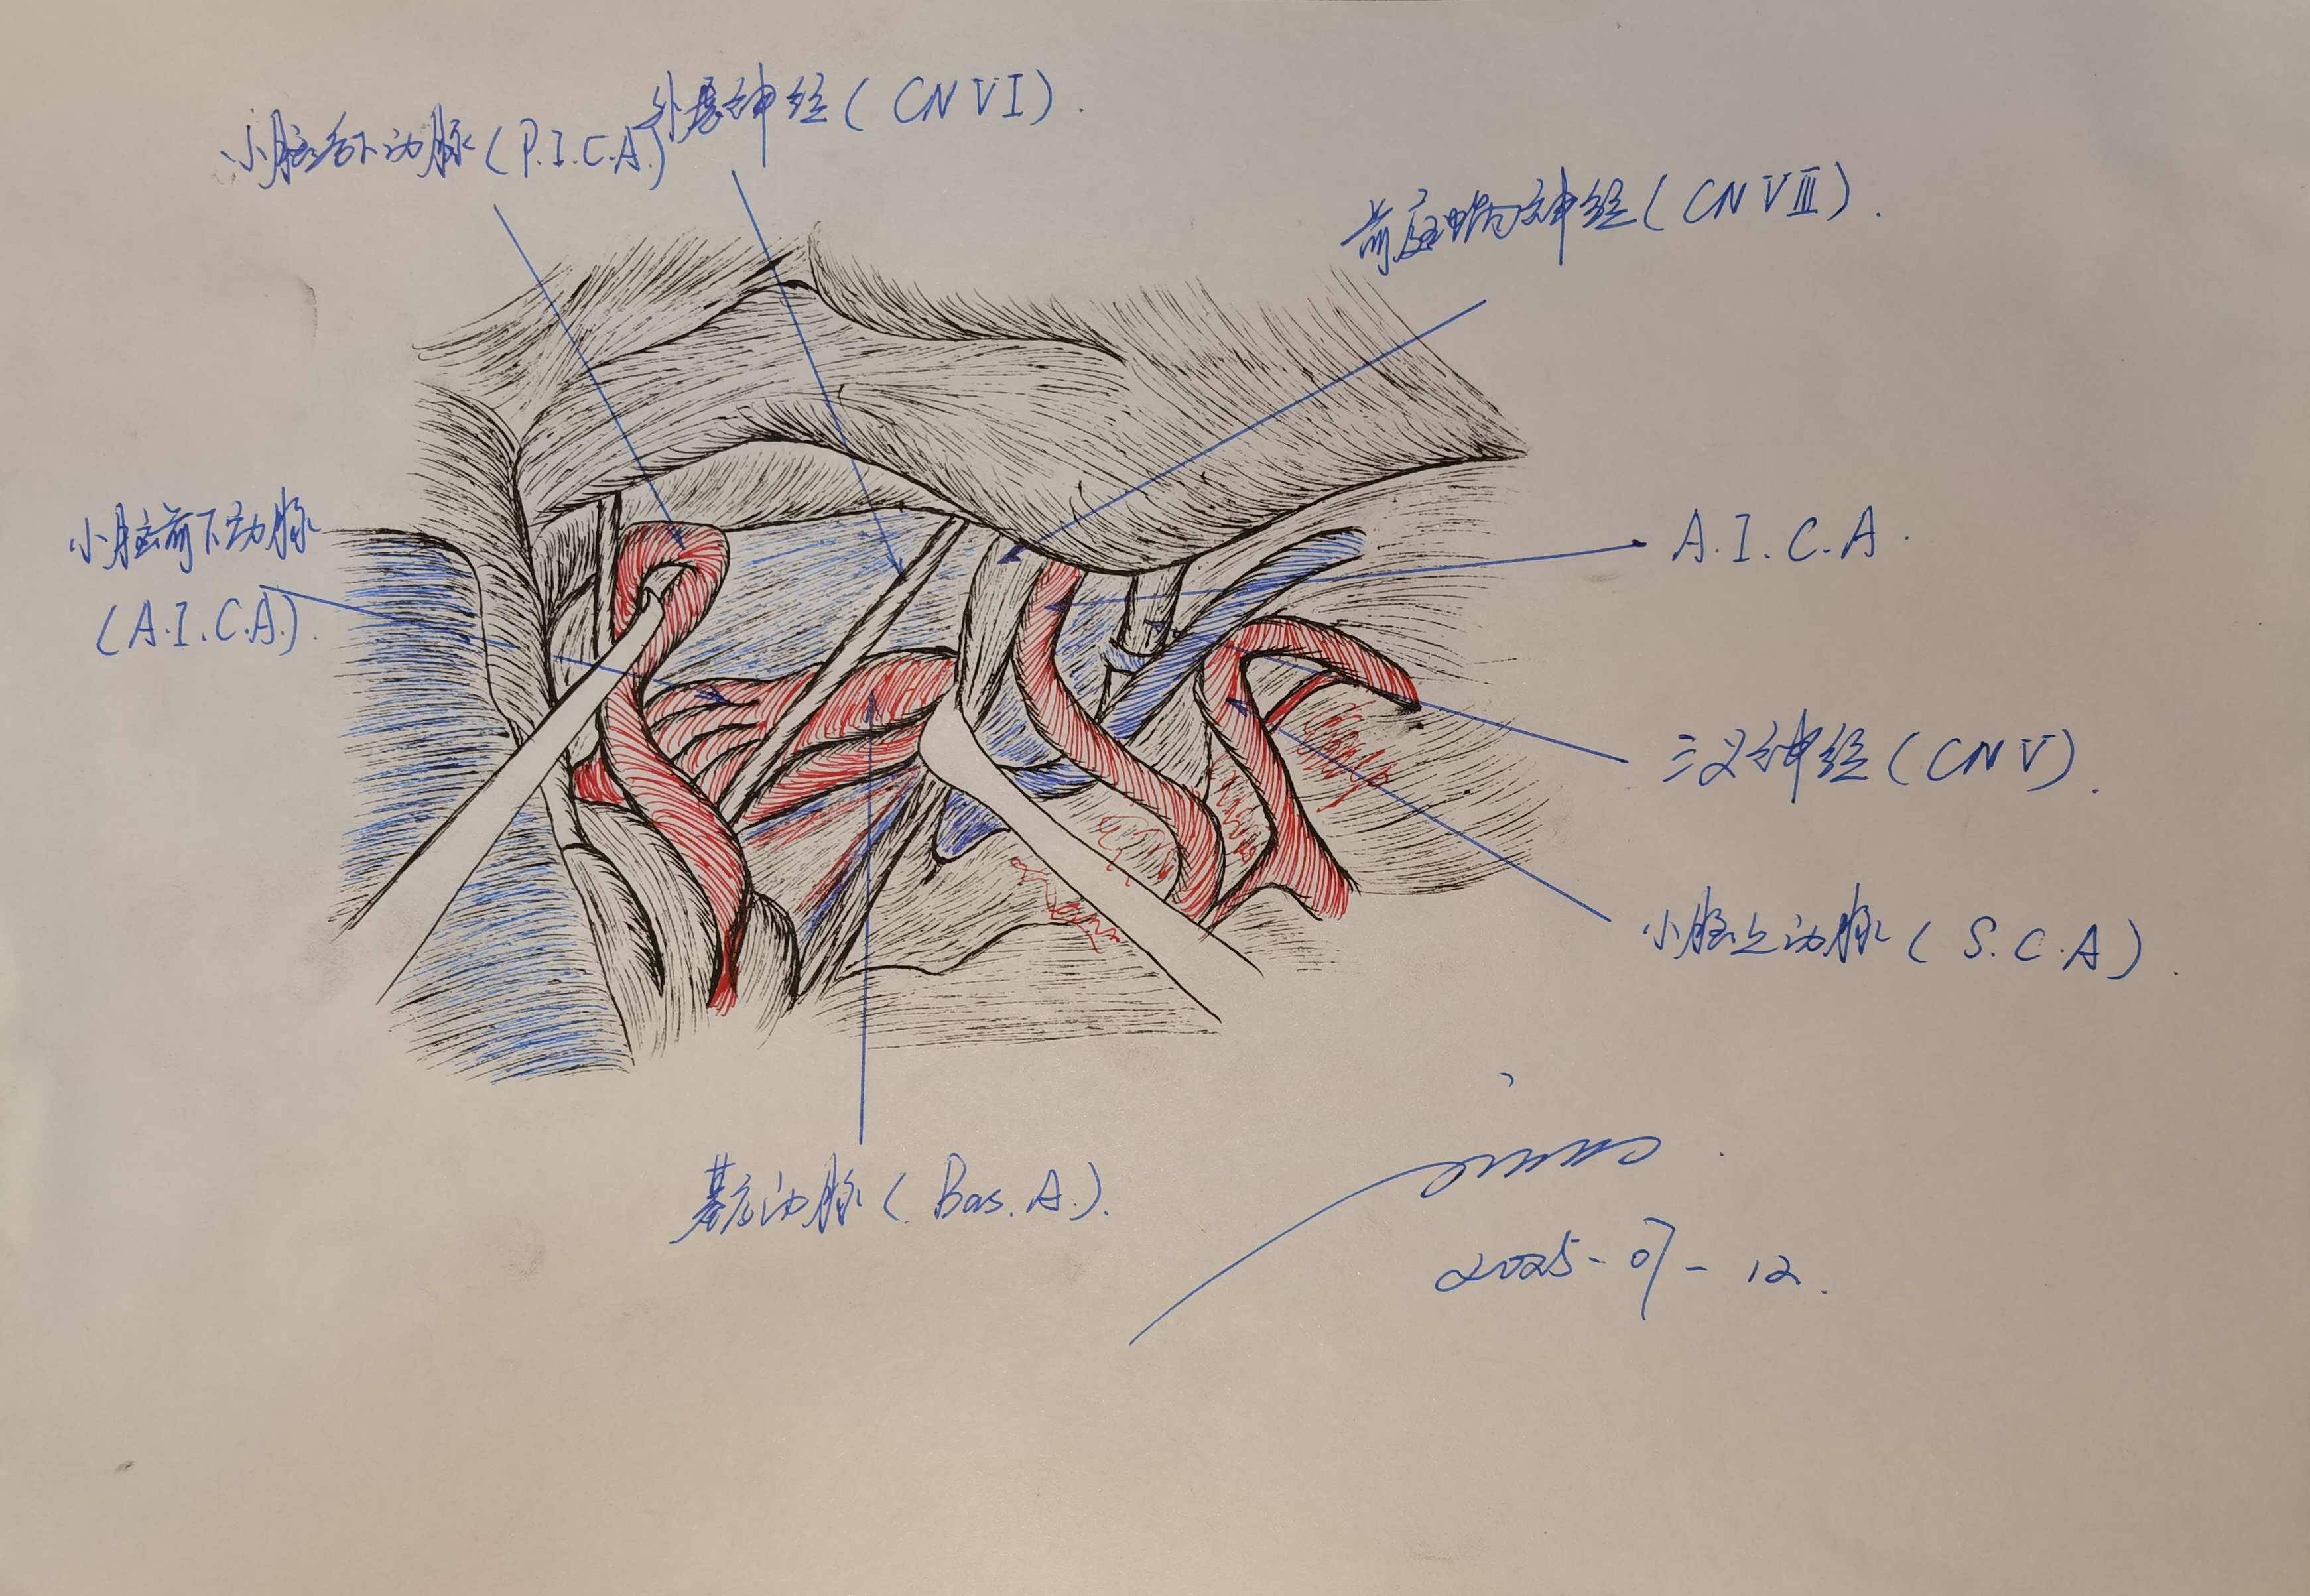 小脑后下动脉(P.I.C.A.)
外展神经(CN VI).
前庭蜗神经(CN VIII).
小脑前下动脉
(A.I.C.A.).
A.I.C.A.
三叉神经(CN V).
小脑上动脉(S.C.A).
基底动脉(Bas.A.).
2025-07-12.